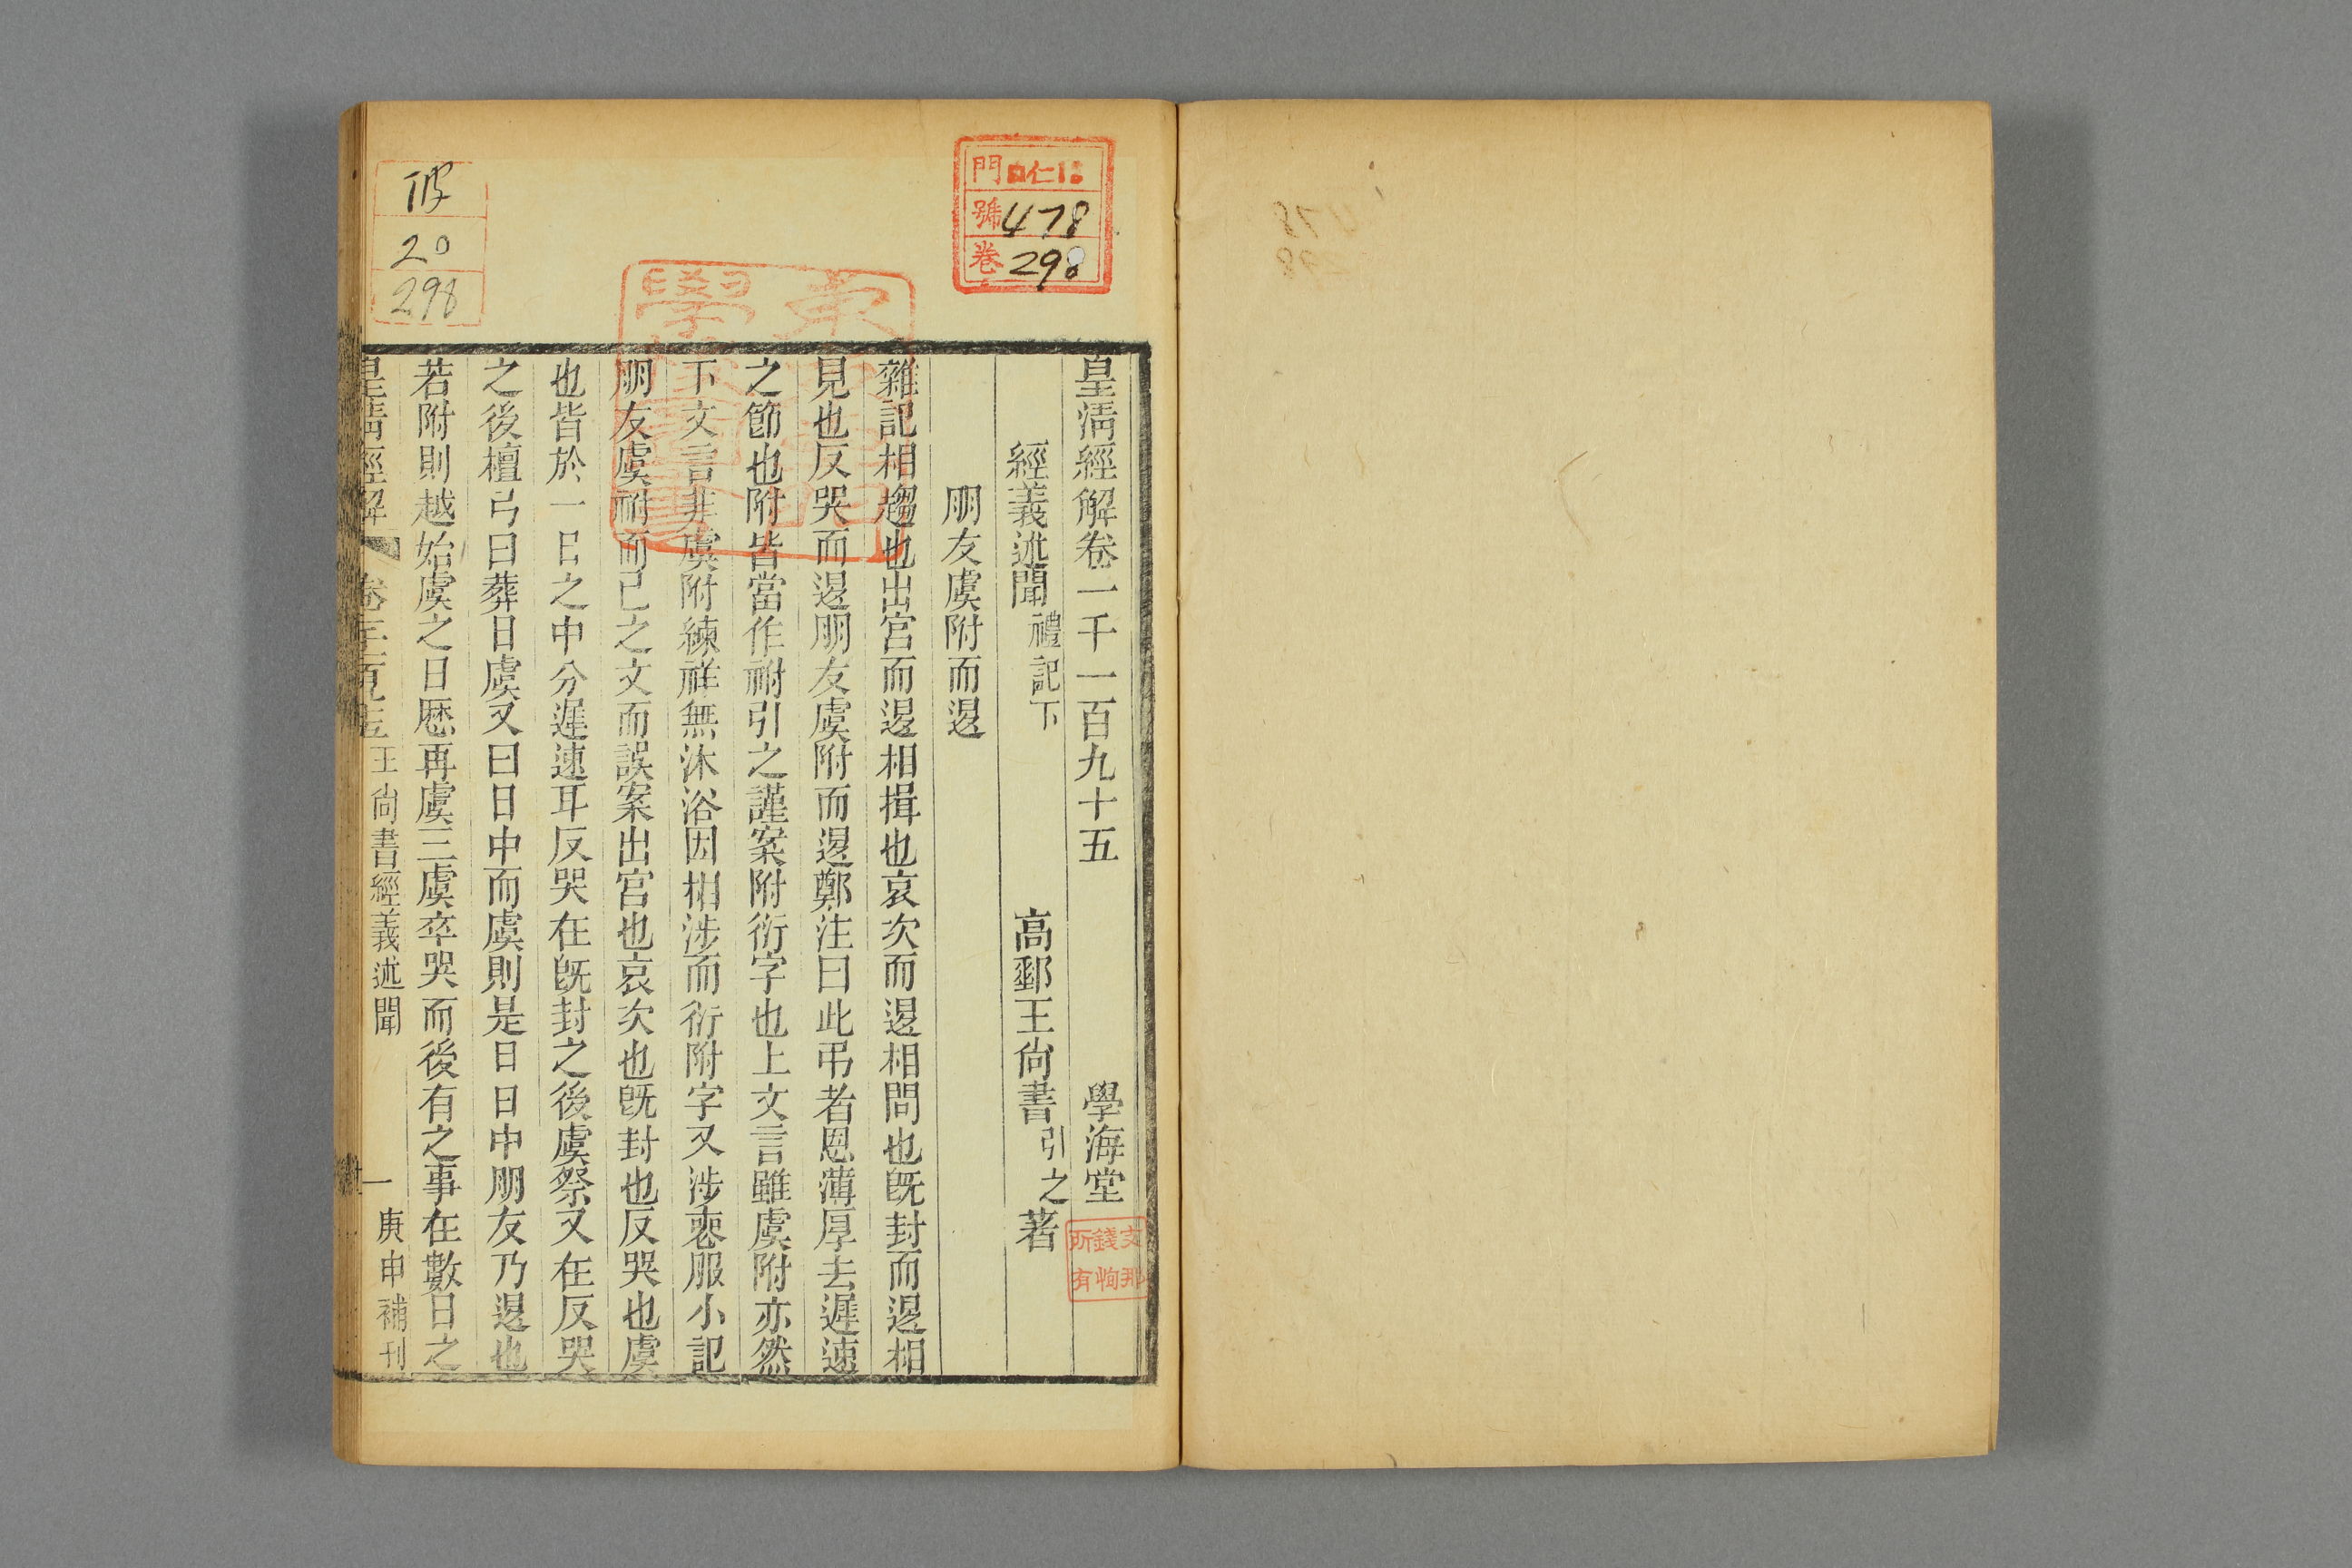 皇清經解卷一千一百九十五　學海堂
經義述聞禮記下　高郵王尙書引之著
朋友虞附而退
雜記相趨也出宮而退相揖也哀次而退相問也旣封而退相
見也反哭而退朋友虞附而退鄭注曰此弔者恩薄厚去遲速
之節也附皆當作祔引之謹案附衍字也上文言雖虞附亦然
下文言非虞附練祥無沐浴因相涉而衍附字又涉喪服小記
朋友虞祔而已之文而誤案出宮也哀次也旣封也反哭也虞
也皆於一日之中分遲速耳反哭在旣封之後虞祭又在反哭
之後檀弓曰葬日虞又曰日中而虞則是日日中朋友乃退也
若附則越始虞之日歷再虞三虞卒哭而後有之事在數日之
皇淸經解
王尙書經義述聞
一
庚申補刊
門
號 478
卷 298
20
298
支那
錢恂
所有